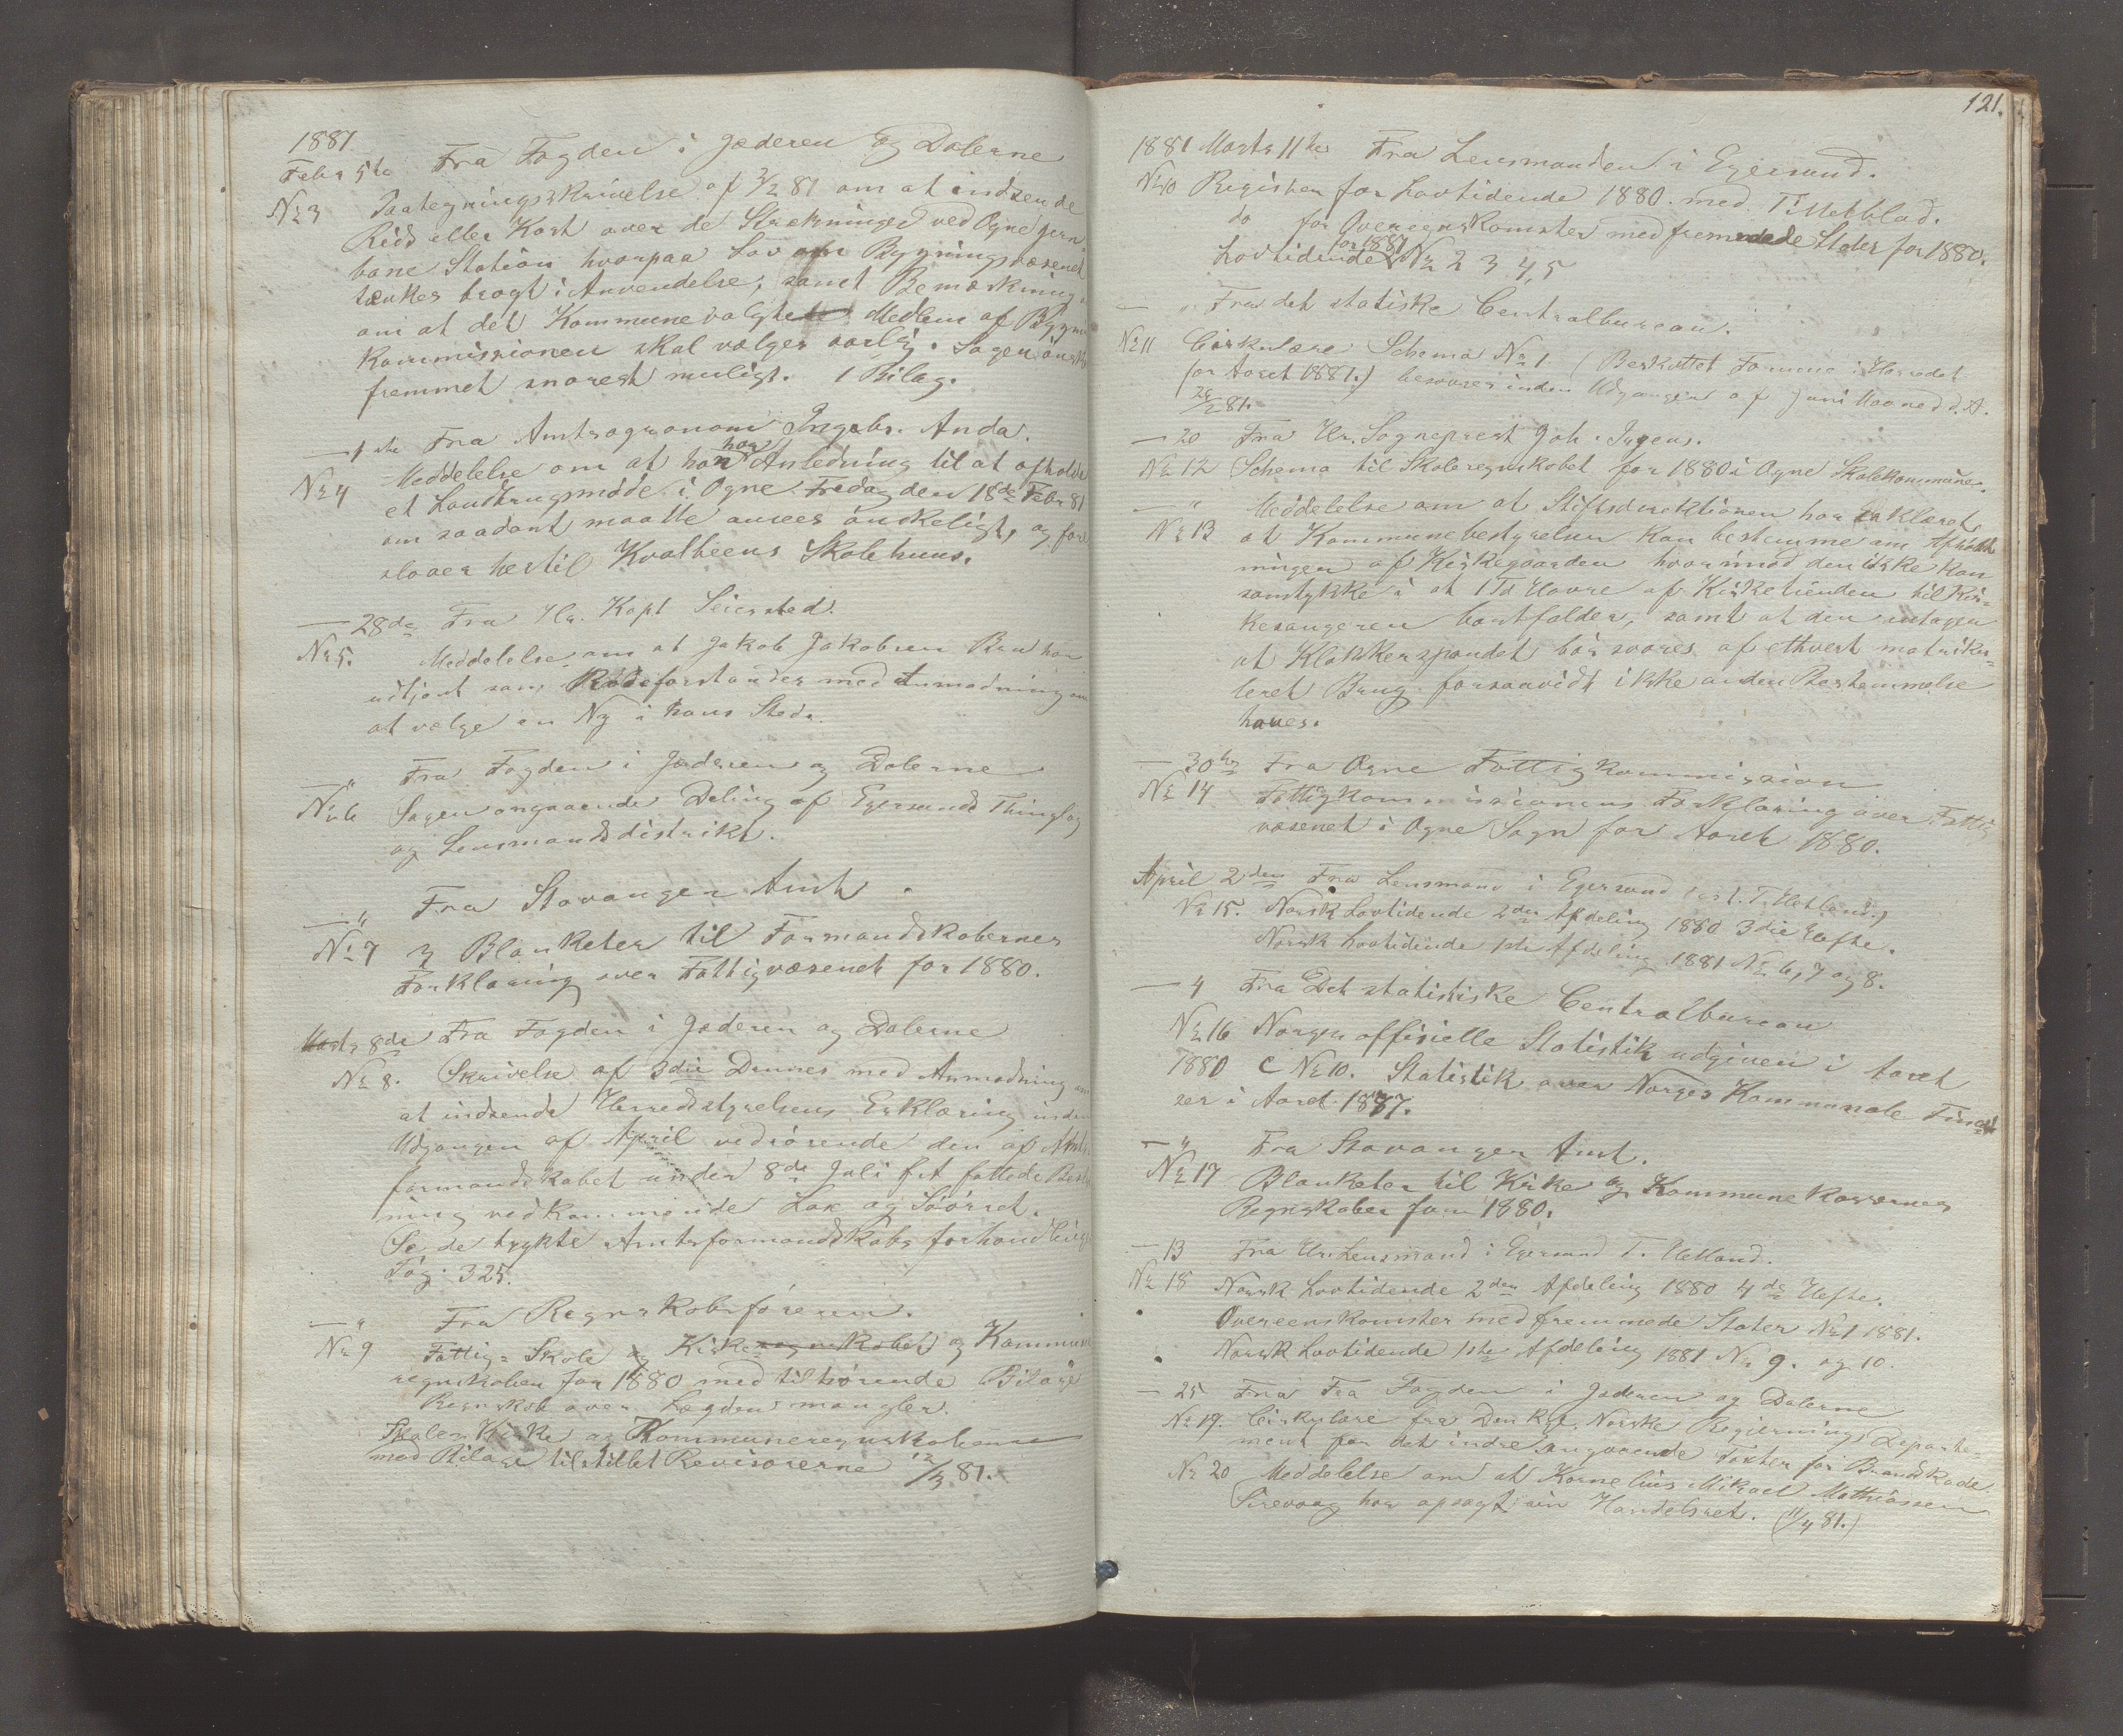 1881.
Febr 5te Fra Fogden i Jæderen og Dalerne
No 3 Paategningsskrivelse af 2/2 81 om at indsende
Rids eller Kart over de Strekninger ved Ogne Jern-
bane Station hvorpaa Lov om Bygningsvæsenet
tænkes bragt i Anvendelse, samt Bemærkning
om at det Kommunevalgte Medlem af Bygn
Kommissionen skal vælges aarlig. Sagen önsk
fremmet snarest muligt. 1 Bilag.
— 1ste Fra Amtsagronom Ingebr. Anda.
No 4 Meddelelse om at han har Anledning til at afholde
et Landbrugsmöde i Ogne Fredag den 18de Febr 81
om saadant maatte ansees önskeligt, og fore
slaaer hertil Kvalbeens Skolehuus.
— 28de Fra Hr. Kapt Seiersted.
No 5. Meddelelse om at Jakob Jakobsen Bru har
udtjent som Rodeforstander med Anmodning om
at vælge en Ny i hans Sted.
— " Fra Fogden i Jæderen og Dalerne
No 6 Sagen angaaende Deling af Egersunds Thinglag
og Lensmandsdistrikt.
— " Fra Stavanger Amt.
No 7 3 Blanketer til Formandskabernes
Forklaring over Fattigvæsenet for 1880.
Marts 8de Fra Fogden i Jæderen og Dalerne
No 8. Skrivelse af 3die Dennes med Anmodning om
at indsende Herredsstyrelsens Erklæring inden
Udgangen af April vedrörende den af Amts
formandskabet under 8de Juli f.A. fattede Bestem
ning vedkommende Lax og Söörret.
Se de trykte Amtsformandskabs forhandlinger
Pag. 325.
— " Fra Regnskabsföreren.
No 9 Fattig= Skole og Kirkeregnskabet og Kommune
regnskaber for 1880 med tilhörende Bilage
Regnskab over Lægden mangler.
Skole= Kirke og Kommuneregnskaberne
med Bilage tilstillet Revisorerne 12/3 81.
121.
1881 Marts 11te Fra Lensmanden i Egersund.
No 10 Register for Lovtidende 1880 med Tittelblad.
do for Overenskomster med fremmede Stater for 1880.
Lovtidende for 1881 No 2 3 4, 5
— " Fra det statiske Centralbureau.
No 11 Cirkulære Schema No 1 (Beskattet Formue i Herredet
for Aaret 1881.) besvares inden Udgangen af Juni Maaned d. A.
28/2 81.
— 20 Fra Hr. Sogneprest Joh. Irgens.
No 12 Schema til Skoleregnskabet for 1880 i Ogne Skolekommune.
— "
No 13 Meddelelse om at Stiftsdirektionen har erklæret
at Kommunebestyrelsen kan bestemme om Afhold
ningen af Kirkegaarden hvorimod den ikke kan
samtykke i at 1 Td Havre af Kirketienden til Kir=
kesangeren bortfalder, samt at den antager
at Klokkerspandet bör svares af ethvert matriku=
leret Brug forsaavidt ikke anden Bestemmelse
haves.
— 30te Fra Ogne Fattigkommission
No 14 Fattigkommissionens Forklaring over Fattig
væsenet i Ogne Sogn for Aaret 1880.
April 2den Fra Lensmand i Egersund T. Hetland.)
No 15. Norsk Lovtidende 2den Afdeling 1880 3die Hefte.
Norsk Lovtidende 1ste Afdeling 1881 No 6, 7 og 8.
— 4 Fra Det statistiske Centralbureau
No 16 Norges officielle Statistik udgiven i Aaret
1880 C No 10. Statistik over Norges Kommunale Finan
ser i Aaret 1877.
— " Fra Stavanger Amt.
No 17 Blanketer til Kirke og Kommunekassernes
Regnskaber for 1880.
— 13 Fra Hr. Lensmand i Egersund T. Hetland.
No 18 Norsk Lovtidende 2den Afdeling 1880 4de Hefte.
Overeenskomster med fremmede Stater No 1 1881.
Norsk Lovtidende 1ste Afdeling 1881 No 9. og 10.
— 25 Fra Fra Fogden i Jæderen og Dalerne
No 19. Cirkulære fra Den kgl. Norske Regjerings Departe=
ment for det indre angaaende Taxter for Brandskade.
No 20 Meddelelse om at Kornelius Mikael Mathiassen
Sirevaag har opsagt sin Handelsret. (11/4 81.)